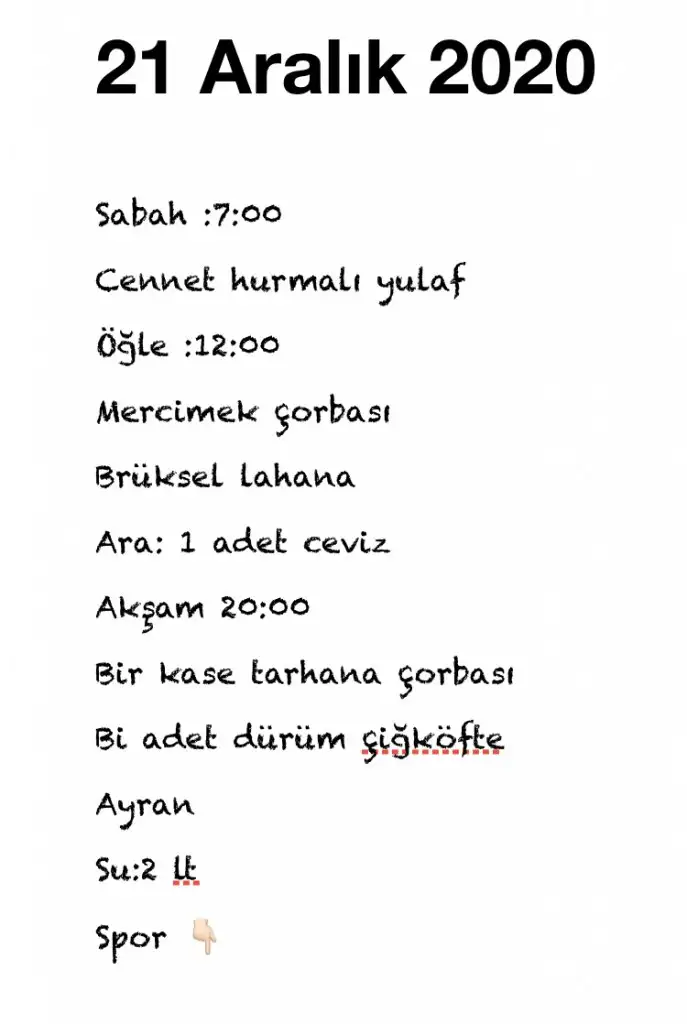 21 Aralık 2020
Sabah :7:00
Cennet hurmalı yulaf
Öğle :12:00
Mercimek çorbası
Brüksel lahana
Ara: 1 adet ceviz
Akşam 20:00
Bir kase tarhana çorbası
Bi adet dürüm çiğköfte
Ayran
Su:2 lt
Spor 👇🏻